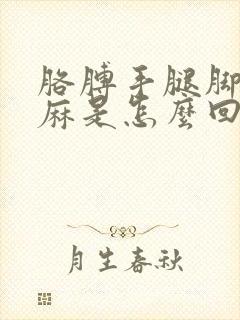 胳膊手腿脚
麻是怎麼回
月生春秋